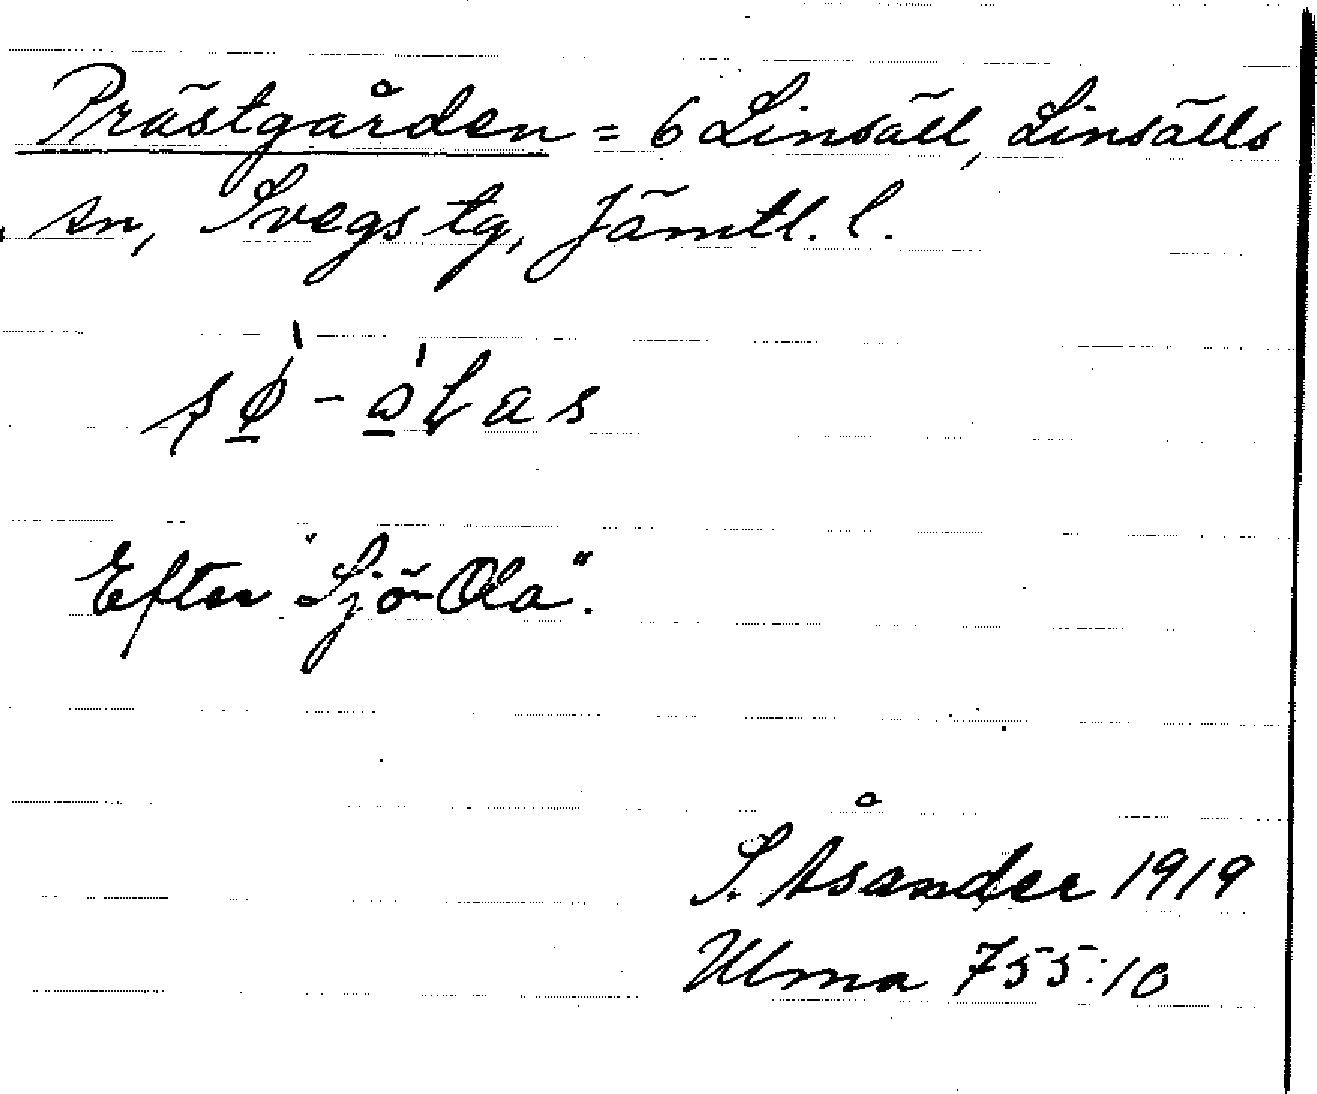 Prästgården = 6 Linsäll, Linsälls
sn, Svegs tg, Jämtl. l.
Efter "Sjö-Ola".
S. Åsander 1919
Ulma 755:10